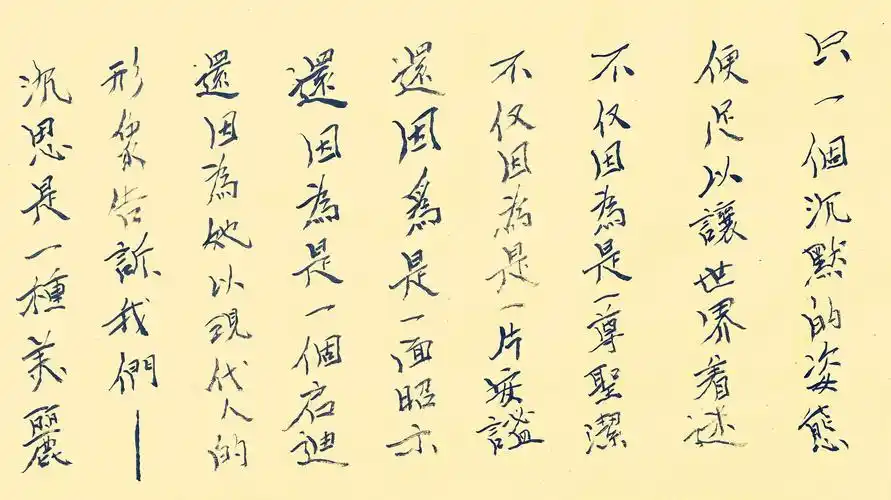 只一個沉默的姿態
便足以讓世界着迷
不仅因為是一尊聖潔
不仅因為是一片安謐
還因爲是一面昭示
還因為是一個启迪
還因為她以現代人的
形象告訴我們——
沉思是一種美麗